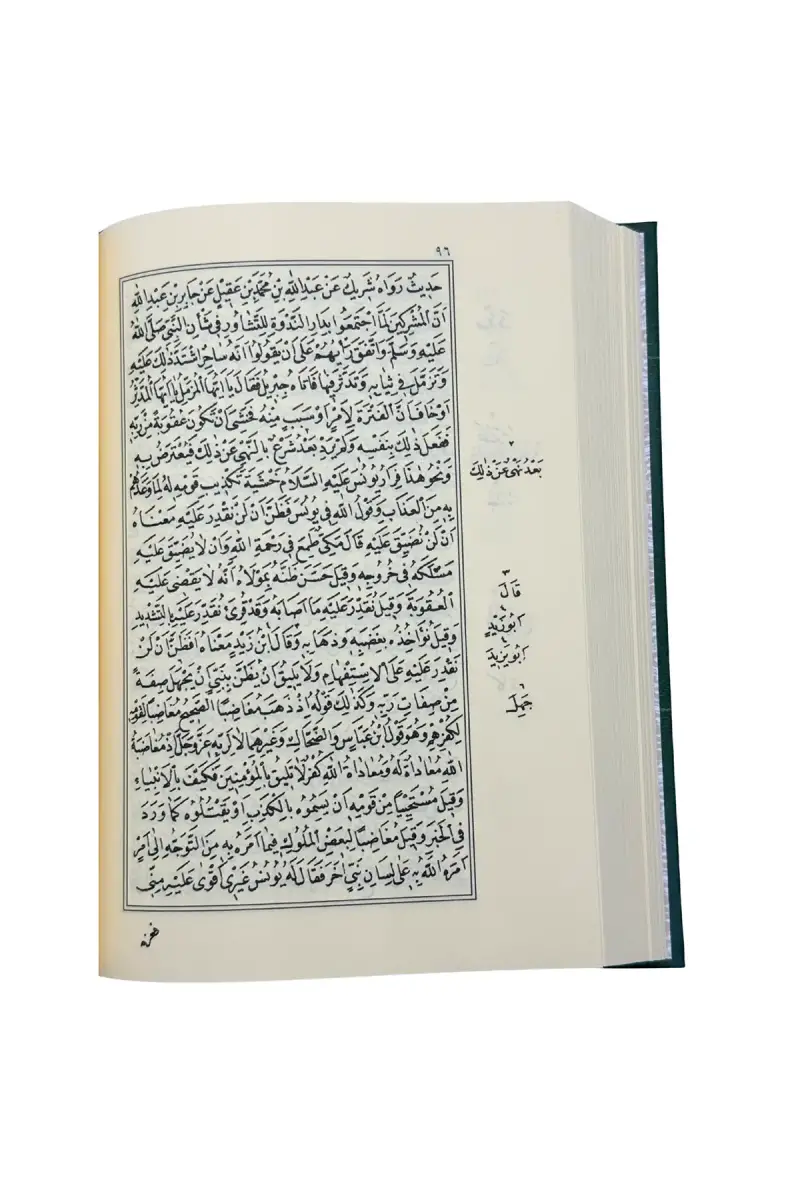 ٩٦
حَدِيثٌ رَوَاهُ شَرِيكٌ عَنْ عَبْدِ اللّٰهِ بْنِ مُحَمَّدِ بْنِ عَقِيلٍ عَنْ جَابِرِ بْنِ عَبْدِ اللّٰهِ
اَنَّ الْمُشْرِكِينَ لَمَّا اجْتَمَعُوا بِدَارِ النَّدْوَةِ لِلتَّشَاوُرِ فِي شَأْنِ النَّبِيِّ صَلَّى اللّٰهُ
عَلَيْهِ وَسَلَّمَ وَاتَّفَقَ رَأْيُهُمْ عَلَى اَنْ يَقُولُوا اَنَّهُ سَاحِرٌ اشْتَدَّ ذٰلِكَ عَلَيْهِ
وَتَزَمَّلَ فِي ثِيَابِهِ وَتَدَثَّرَ فِيهَا فَاَتَاهُ جِبْرِيلُ فَقَالَ يَا اَيُّهَا الْمُزَّمِّلُ يَا اَيُّهَا الْمُدَّثِّرُ
اَوْ خَافَ اَنَّ الْفَتْرَةَ لِاَمْرٍ اَوْ سَبَبٍ مِنْهُ فَخَشِيَ اَنْ تَكُونَ عُقُوبَةً مِنْ رَبِّهِ
فَفَعَلَ ذٰلِكَ بِنَفْسِهِ وَلَمْ يَرِدْ بَعْدُ شَرْعٌ بِالنَّهْيِ عَنْ ذٰلِكَ فَيُعْتَرَضَ بِهِ
وَنَحْوُ هٰذَا فِرَارُ يُونُسَ عَلَيْهِ السَّلَامُ خَشْيَةَ تَكْذِيبِ قَوْمِهِ لَهُ لِمَا وَعَدَهُمْ
بِهِ مِنَ الْعَذَابِ وَقَوْلُ اللّٰهِ فِي يُونُسَ فَظَنَّ اَنْ لَنْ نَقْدِرَ عَلَيْهِ مَعْنَاهُ
اَنْ لَنْ نُضَيِّقَ عَلَيْهِ قَالَ مَكِّيٌّ طَمِعَ فِي رَحْمَةِ اللّٰهِ وَاَنْ لَا يُضَيِّقَ عَلَيْهِ
مَسْلَكَهُ فِي خُرُوجِهِ وَقِيلَ حَسَّنَ ظَنَّهُ بِمَوْلَاهُ اَنَّهُ لَا يَقْضِي عَلَيْهِ
الْعُقُوبَةَ وَقِيلَ نُقَدِّرَ عَلَيْهِ مَا اَصَابَهُ وَقَدْ قُرِئَ نُقَدِّرَ عَلَيْهِ بِالتَّشْدِيدِ
وَقِيلَ نُؤَاخِذَهُ بِغَضَبِهِ وَذَهَابِهِ وَقَالَ ابْنُ زَيْدٍ مَعْنَاهُ اَفَظَنَّ اَنْ لَنْ
نَقْدِرَ عَلَيْهِ عَلَى الْاِسْتِفْهَامِ وَلَا يَلِيقُ اَنْ يُظَنَّ بِنَبِيٍّ اَنْ يَجْهَلَ صِفَةً
مِنْ صِفَاتِ رَبِّهِ وَكَذٰلِكَ قَوْلُهُ اِذْ ذَهَبَ مُغَاضِبًا الصَّحِيحُ مُغَاضِبًا لِقَوْمِهِ
لِكُفْرِهِمْ وَهُوَ قَوْلُ ابْنِ عَبَّاسٍ وَالضَّحَّاكِ وَغَيْرِهِمَا لَا لِرَبِّهِ عَزَّ وَجَلَّ اِذْ مُغَاضَبَةُ
اللّٰهِ مُعَادَاةٌ لَهُ وَمُعَادَاةُ اللّٰهِ كُفْرٌ لَا تَلِيقُ بِالْمُؤْمِنِينَ فَكَيْفَ بِالْاَنْبِيَاءِ
وَقِيلَ مُسْتَحْيِيًا مِنْ قَوْمِهِ اَنْ يَسِمُوهُ بِالْكَذِبِ اَوْ يَقْتُلُوهُ كَمَا وَرَدَ
فِي الْخَبَرِ وَقِيلَ مُغَاضِبًا لِبَعْضِ الْمُلُوكِ فِيمَا اَمَرَهُ بِهِ مِنَ التَّوَجُّهِ اِلَى اَمْرٍ
اَمَرَهُ اللّٰهُ بِهِ عَلَى لِسَانِ نَبِيٍّ اٰخَرَ فَقَالَ لَهُ يُونُسُ غَيْرِي اَقْوَى عَلَيْهِ مِنِّي
٢
بَعْدُ نَهْيٌ عَنْ ذٰلِكَ
٣
قَالَ
اَبُو زَيْدٍ
اَبُو يَزِيدَ
٦
جَهِلَ